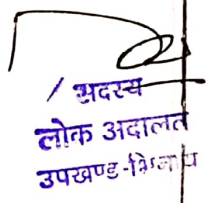 / सदस्य
लोक अदालत
उपखण्ड-